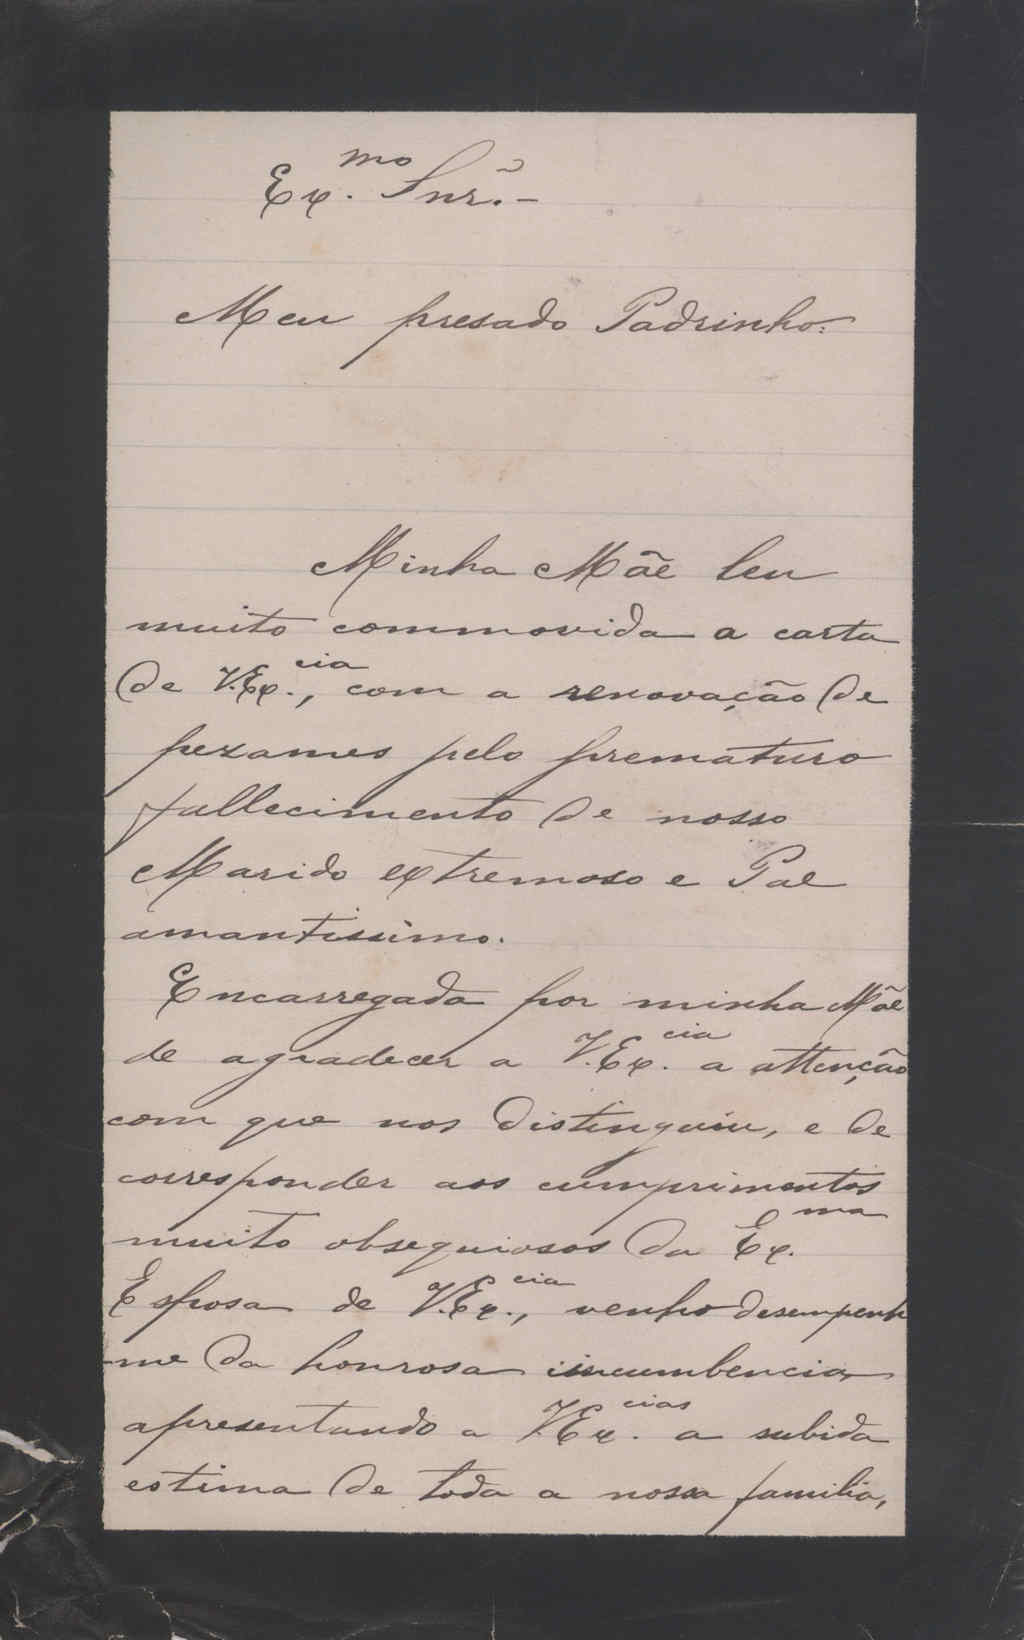 Ex.mo Snr.-
Meu presado Padrinho:
Minha Mãe leu
muito commovida a carta
de V.Ex.cia, com a renovação de
pezames pelo prematuro
fallecimento de nosso
Marido extremoso e Pae
amantissimo.
Encarregada por minha Mãe
de agradecer a V.Ex.cia a attenção
com que nos distinguiu, e de
corresponder aos cumprimentos
muito obsequiosos da Ex.ma
Esposa de V.Ex.cia, venho desempenh
-me da honrosa incumbencia,
apresentando a V.Ex.cias a subida
estima de toda a nossa familia,